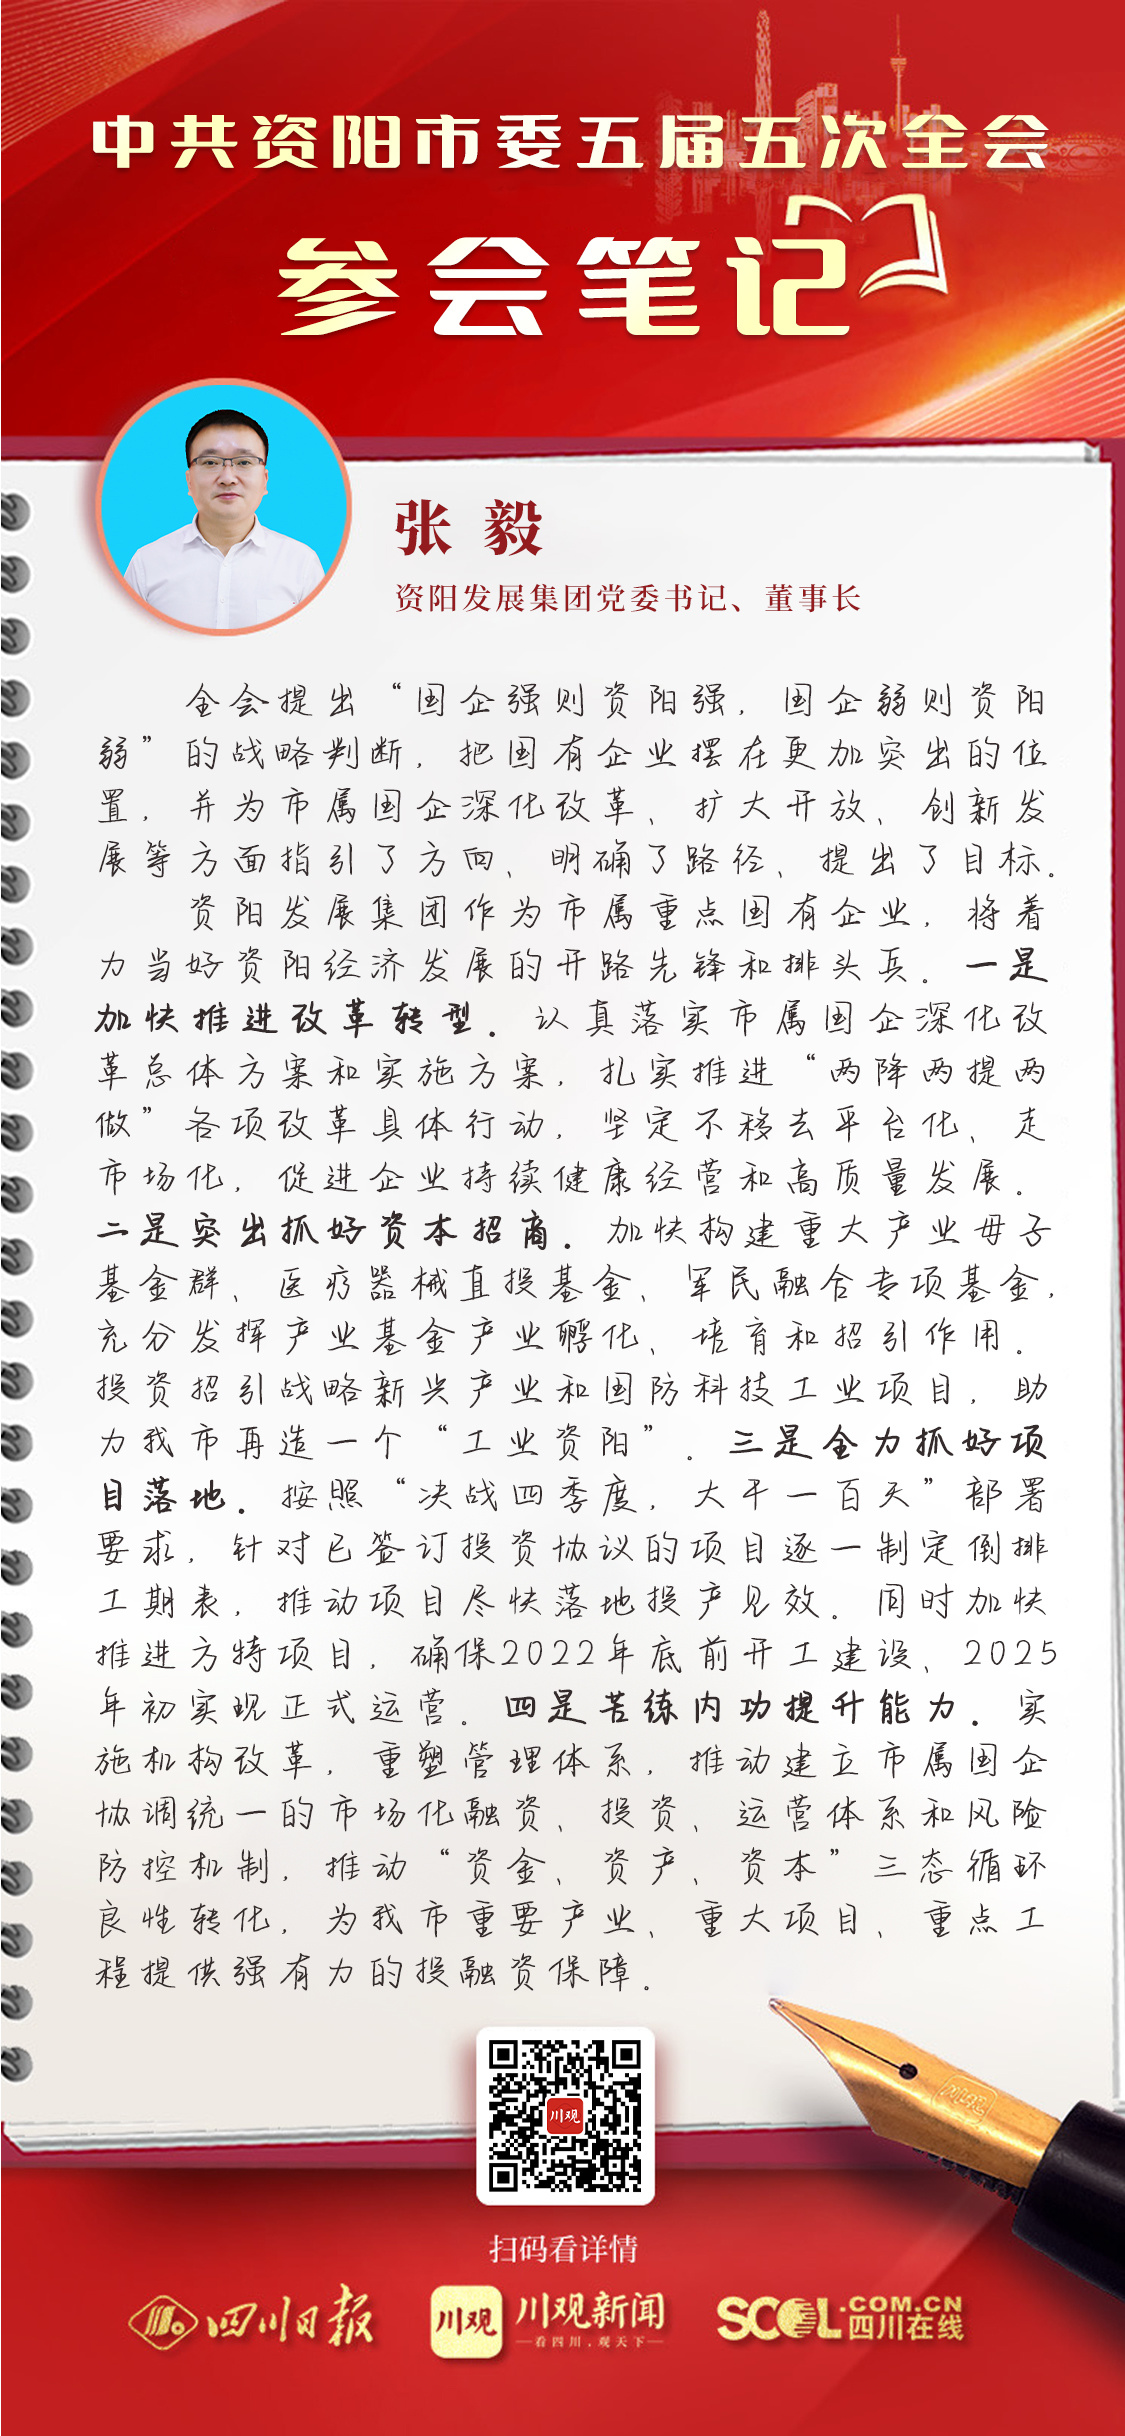 中共资阳市委五届五次全会
参会笔记
张 毅
资阳发展集团党委书记、董事长
全会提出“国企强则资阳强，国企弱则资阳
弱”的战略判断，把国有企业摆在更加突出的位
置，并为市属国企深化改革、扩大开放、创新发
展等方面指引了方向、明确了路径、提出了目标。
资阳发展集团作为市属重点国有企业，将着
力当好资阳经济发展的开路先锋和排头兵。一是
加快推进改革转型。认真落实市属国企深化改
革总体方案和实施方案，扎实推进“两降两提两
做”各项改革具体行动，坚定不移去平台化、走
市场化，促进企业持续健康经营和高质量发展。
二是突出抓好资本招商。加快构建重大产业母子
基金群、医疗器械直投基金、军民融合专项基金，
充分发挥产业基金产业孵化、培育和招引作用。
投资招引战略新兴产业和国防科技工业项目，助
力我市再造一个“工业资阳”。三是全力抓好项
目落地。按照“决战四季度，大干一百天”部署
要求，针对已签订投资协议的项目逐一制定倒排
工期表，推动项目尽快落地投产见效。同时加快
推进方特项目，确保2022年底前开工建设、2025
年初实现正式运营。四是苦练内功提升能力。实
施机构改革，重塑管理体系，推动建立市属国企
协调统一的市场化融资、投资、运营体系和风险
防控机制，推动“资金、资产、资本”三态循环
良性转化，为我市重要产业、重大项目、重点工
程提供强有力的投融资保障。
川观
扫码看详情
四川日报
川观 川观新闻
看四川，观天下
SCOL.COM.CN
四川在线